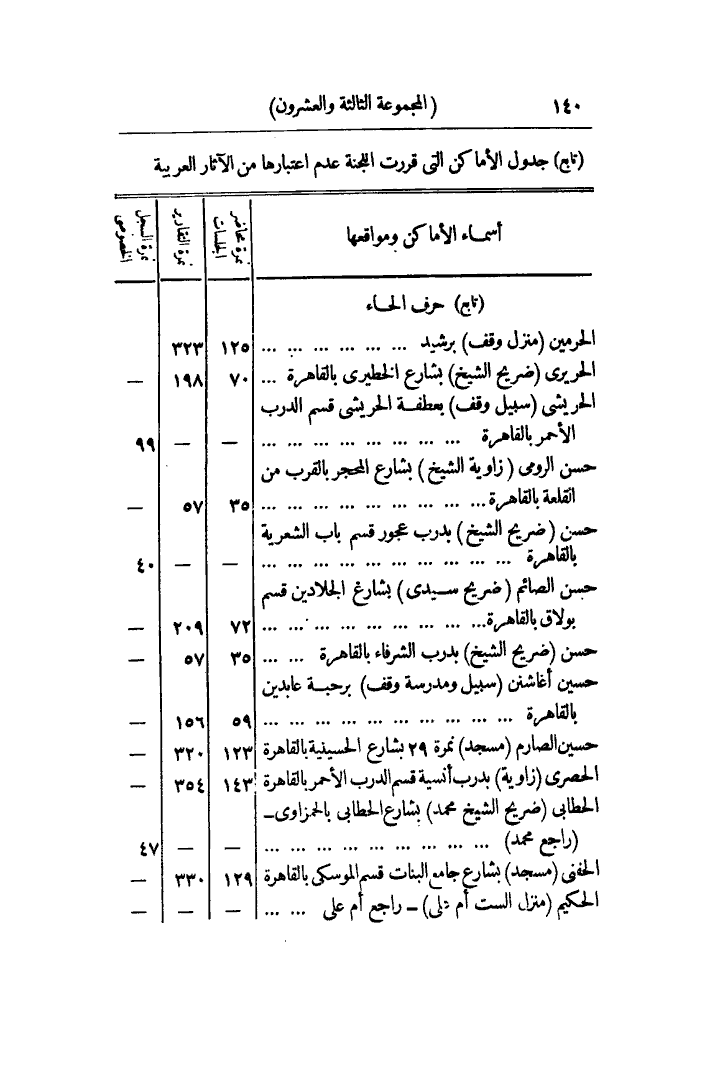 ١٤٠ (المجموعة الثالثة والعشرون)
(تابع) جدول الأماكن التى قررت اللجنة عدم اعتبارها من الآثار العربية
أسماء الأماكن ومواقعها | نمرة محاضر الجلسات | نمرة التقارير | نمرة السجل الخصوصى
(تابع) حرف الحاء
الحرمين (منزل وقف) برشيد ... ... ... ... ... ... ١٢٥ ٣٢٣
الحريرى (ضريح الشيخ) بشارع الخطيرى بالقاهرة ... ٧٠ ١٩٨ —
الحريشى (سبيل وقف) بعطفة الحريشى قسم الدرب
الأحمر بالقاهرة ... ... ... ... ... ... ... ... — — ٩٩
حسن الرومى (زاوية الشيخ) بشارع المحجر بالقرب من
القلعة بالقاهرة ... ... ... ... ... ... ... ... ... ٣٥ ٥٧ —
حسن (ضريح الشيخ) بدرب عجور قسم باب الشعرية
بالقاهرة ... ... ... ... ... ... ... ... ... ... — — ٤٠
حسن الصائم (ضريح سيدى) بشارع الجلادين قسم
بولاق بالقاهرة ... ... ... ... ... ... ... ... ... ٧٢ ٢٠٩ —
حسن (ضريح الشيخ) بدرب الشرفاء بالقاهرة ... ... ٣٥ ٥٧ —
حسين أغاشنن (سبيل ومدرسة وقف) برحبة عابدين
بالقاهرة ... ... ... ... ... ... ... ... ... ... ٥٩ ١٥٦ —
حسين الصارم (مسجد) نمرة ٢٩ بشارع الحسينية بالقاهرة ١٢٣ ٣٢٠ —
الحصرى (زاوية) بدرب أنسية قسم الدرب الأحمر بالقاهرة ١٤٣ ٣٥٤ —
الحطابى (ضريح الشيخ محمد) بشارع الحطابى بالحمزاوى —
(راجع محمد) ... ... ... ... ... ... ... ... ... — — ٤٧
الحفنى (مسجد) بشارع جامع البنات قسم الموسكى بالقاهرة ١٢٩ ٣٣٠ —
الحكيم (منزل الست أم على) — راجع أم على ... ... — — —